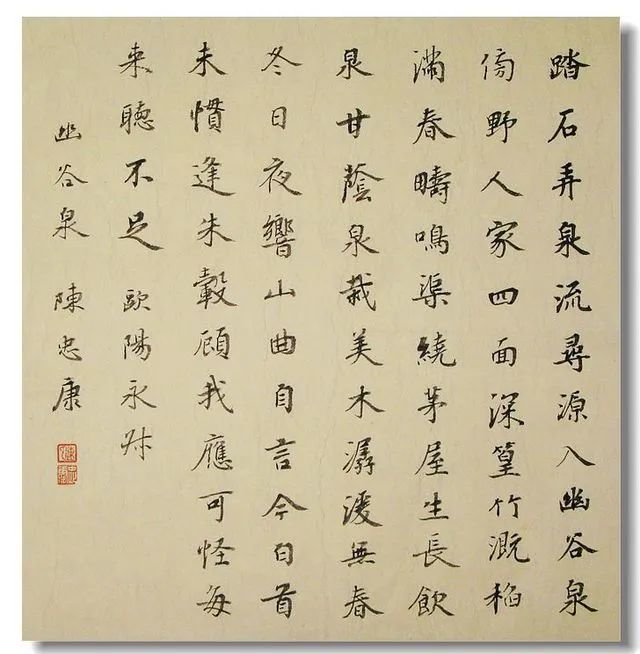 踏石弄泉流尋源入幽谷泉
傍野人家四面深篁竹溉稻
滿春疇鳴渠繞茅屋生長飲
泉甘蔭泉栽美木潺湲無春
冬日夜響山曲自言今白首
未慣逢朱轂顧我應可怪每
来聽不足 歐陽永叔
幽谷泉 陳忠康